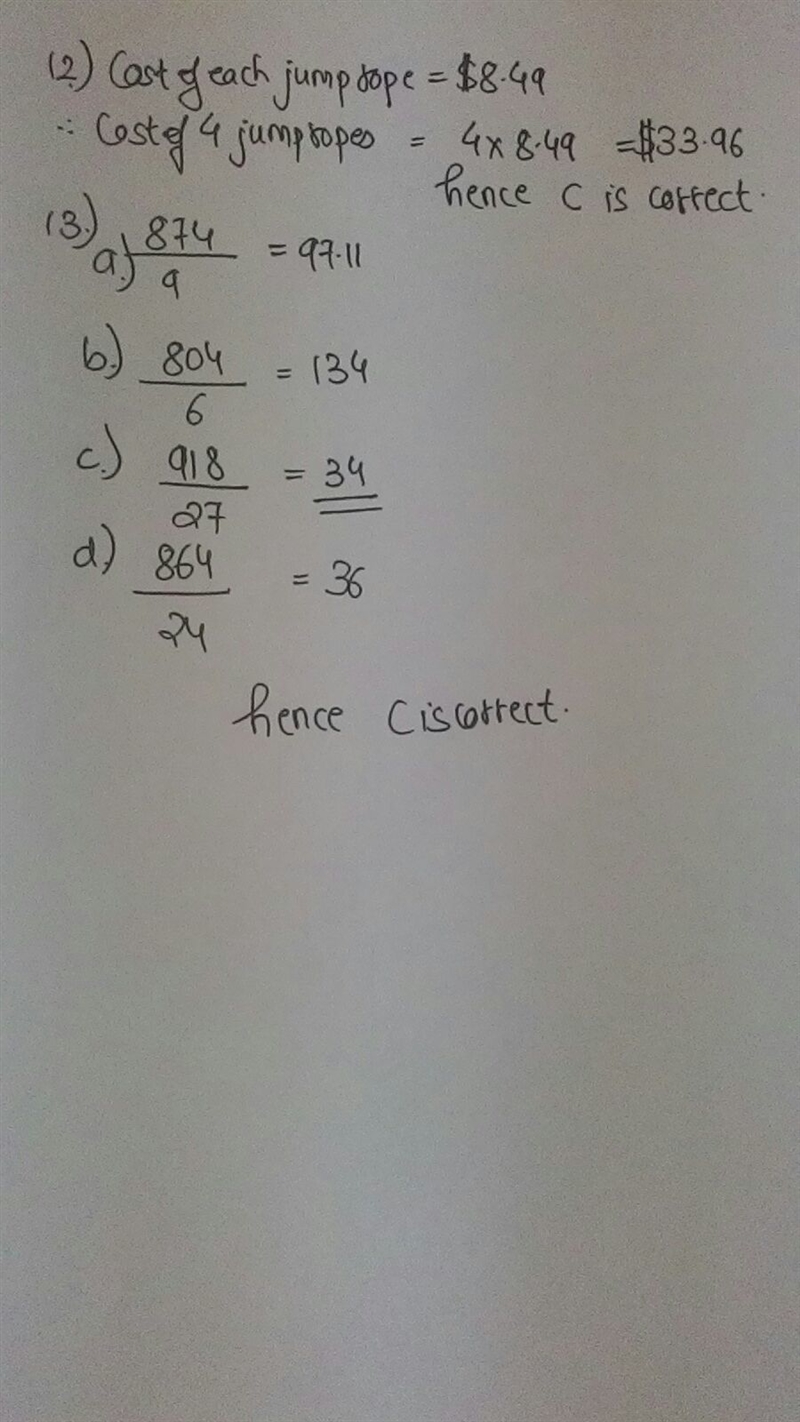 (2.) Cost of each jump rope = $8.49
∴ Cost of 4 jump ropes = 4 x 8.49 = $33.96
hence C is correct.
(3.)
a.) 874/9 = 97.11
b.) 804/6 = 134
c.) 918/27 = 34
d.) 864/24 = 36
hence C is correct.